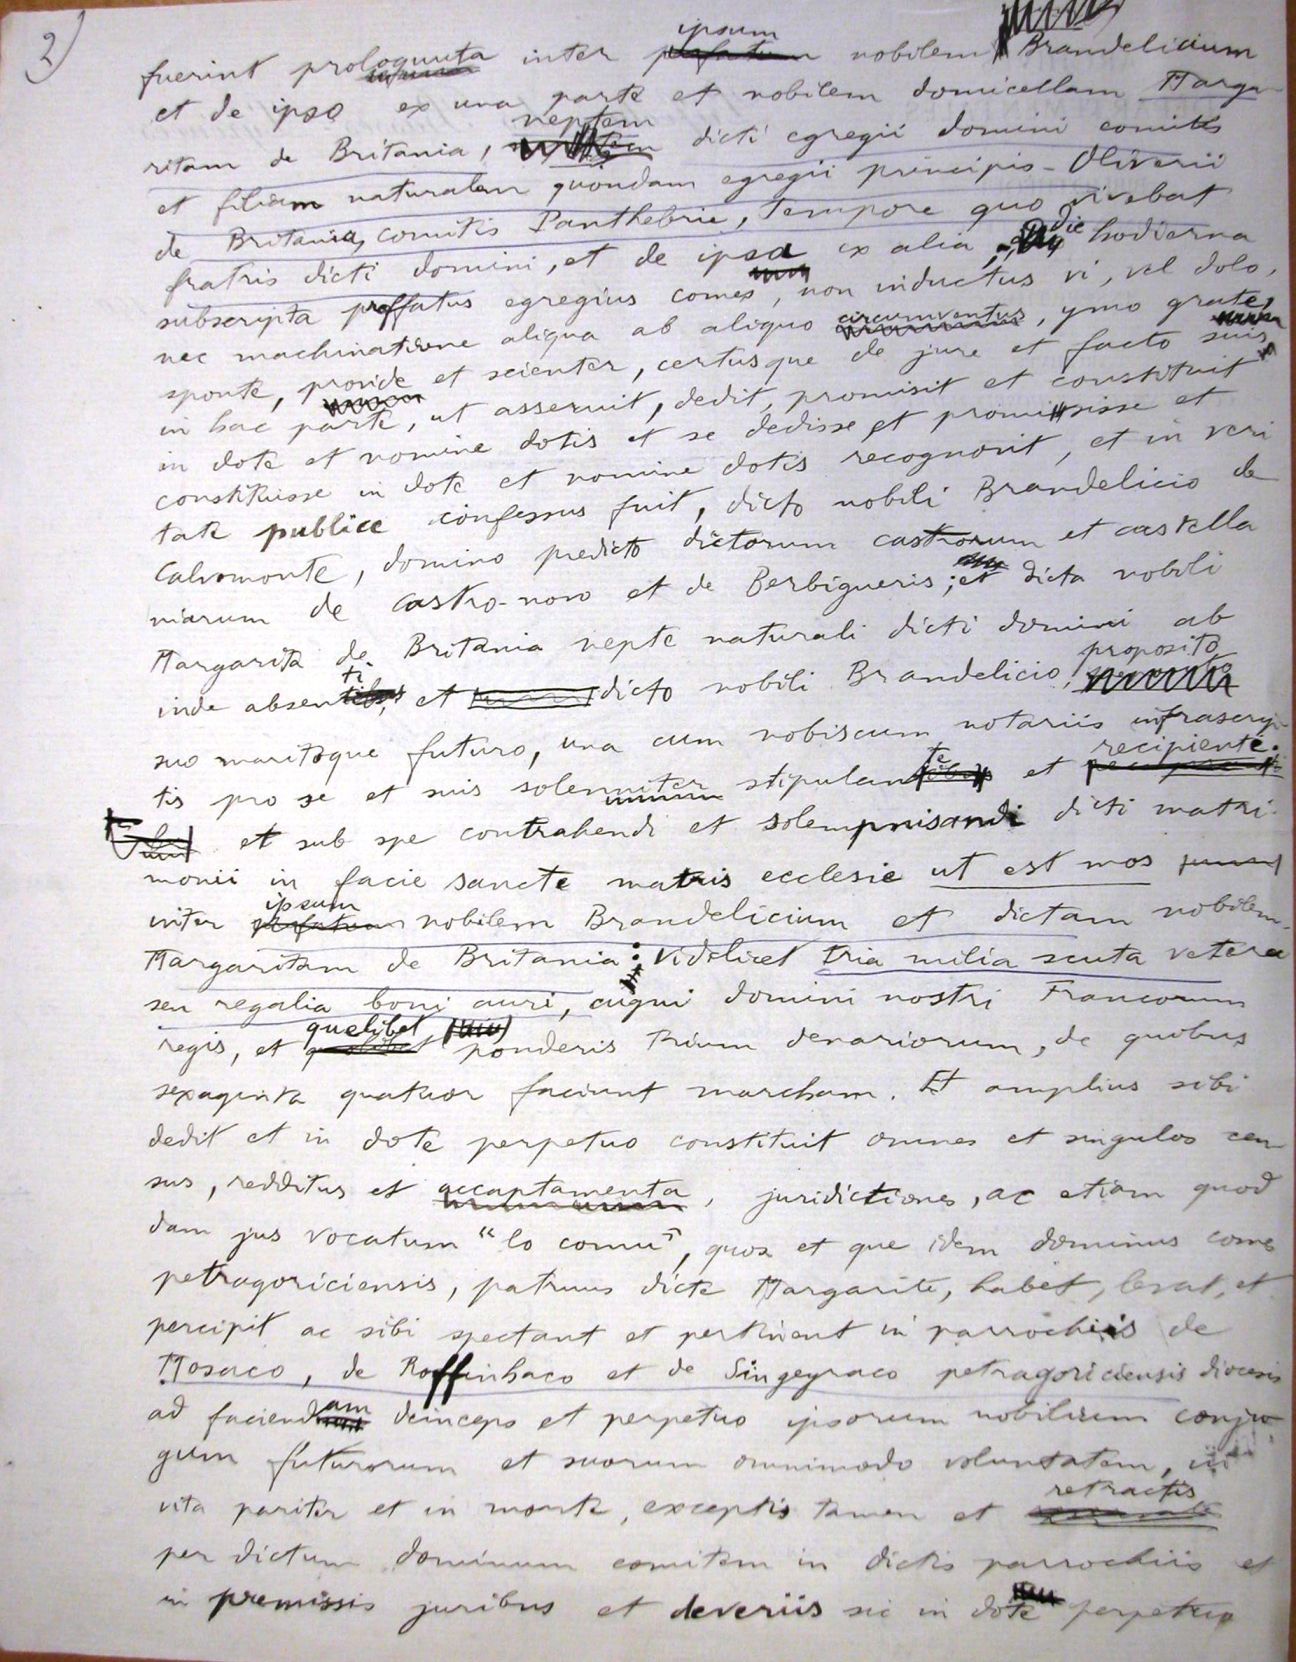 2)
fuerint prologuuta inter ipsum nobilem Brandelicium
et de ipso ex una parte et nobilem domicellam Marga-
ritam de Britania, neptem dicti egregii domini comitis
et filiam naturalem quondam egregii principis Oliverii
de Britania, comitis Panthebrie, tempore quo vivebat
fratris dicti domini, et de ipsa ex alia, die hodierna
subscripta preffatus egregius comes, non inductus vi, vel dolo,
nec machinatione aliqua ab aliquo circumventus, ymo grate,
sponte, provide et scienter, certusque de jure et facto suis
in hac parte, ut asseruit, dedit, promisit et constituit
in dote et nomine dotis et se dedisse et promisisse et
constituisse in dote et nomine dotis recognovit, et in veri
tate publice confessus fuit, dicto nobili Brandelicio de
Calvomonte, domino predicto dictorum castrorum et castella
niarum de Castro-novo et de Berbigueris; et dicta nobili
Margarita de Britania nepte naturali dicti domini ab
inde absenti, et dicto nobili Brandelicio, proposito
suo maritoque futuro, una cum nobiscum notariis infrascrip-
tis pro se et suis solenniter stipulante et recipiente.
et sub spe contrahendi et solempnisandi dicti matri-
monii in facie sancte matris ecclesie ut est mos
inter ipsum nobilem Brandelicium et dictam nobilem
Margaritam de Britania: Videlicet tria milia scuta vetera
seu regalia boni auri, cugni domini nostri Francorum
regis, et quelibet ponderis trium denariorum, de quobus
sexaginta quatuor faciunt marcham. Et amplius sibi
dedit et in dote perpetuo constituit omnes et singulos cen
sus, redditus et accaptamenta, juridictiones, ac etiam quod
dam jus vocatum "lo comu", quos et que idem dominus comes
petragoriciensis, patruus dicte Margarite, habet, levat, et
percipit ac sibi spectant et pertinent in parrochiis de
Mosaco, de Roffinhaco et de Singeyraco petragoriciensis diocesis
ad faciendam deinceps et perpetuo ipsorum nobilium conju-
gum futurorum et suorum omnimodo voluntatem, in
vita pariter et in morte, exceptis tamen et retractis
per dictum dominum comitem in dictis parrochiis et
in premissis juribus et deveriis sic in dote perpetuo